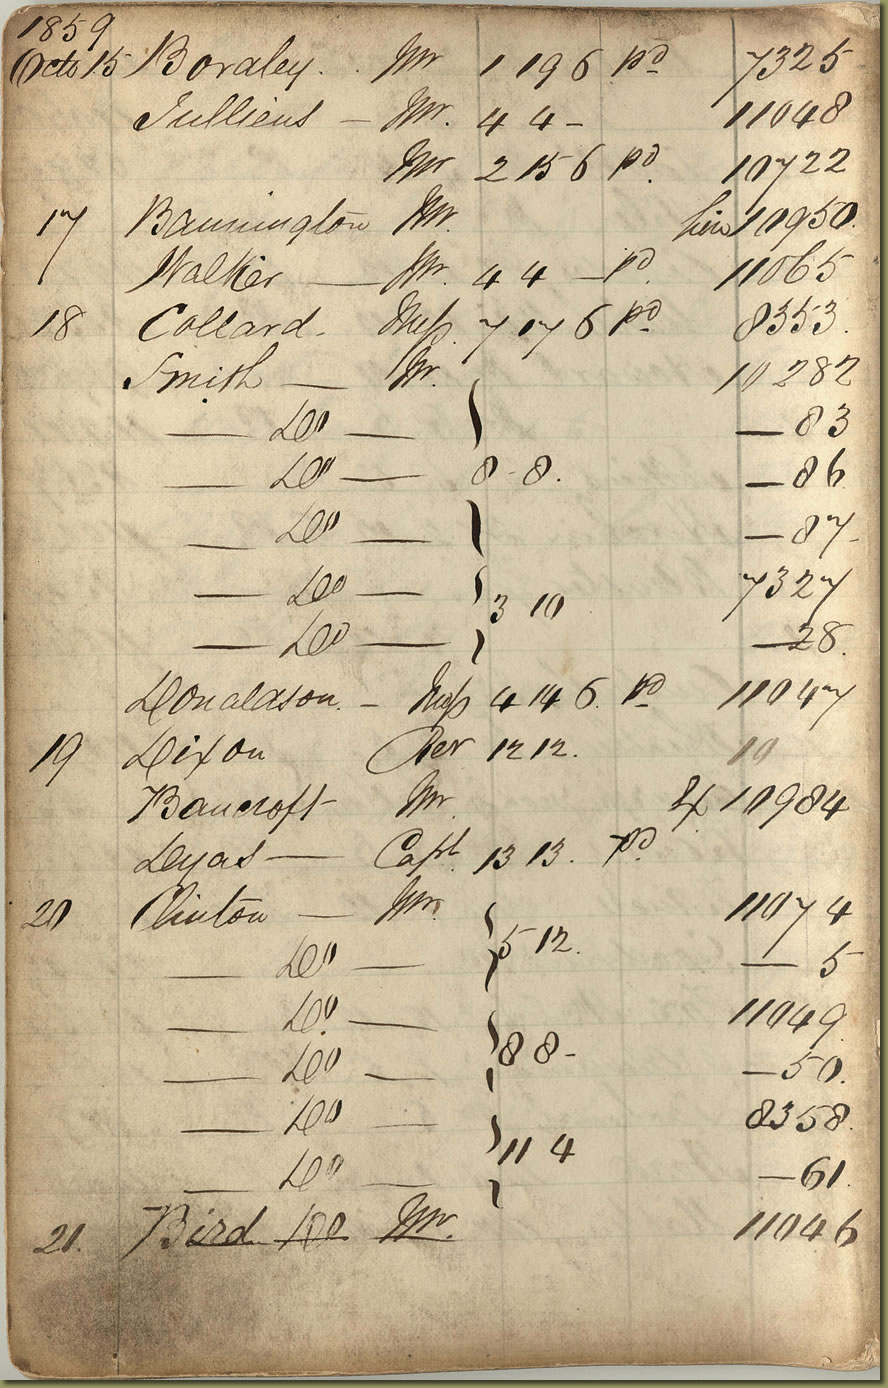 1859
Octo 15 Boraley. Mr 1 19 6 pd 7325
Julliens — Mr. 4 4 - 11048
Mr 2 15 6 pd. 10722
17 Bannington Mr. 10950
Walker — Mr. 4 4 — pd. 11065
18 Collard. Miss 7 17 6 pd 8353.
Smith — Mr. 10282
— Do — — 83
— Do — 8 - 8. — 86
— Do — — 87
— Do — 7327
3 10
— Do — — 28.
Donaldson. - Miss 4 14 6. pd 11047
19 Dixon Rev 12 12. 10
Bancroft Mr. 10984
Dyas — Capt. 13 13. pd
20 Clinton — Mr. 11074
5 12.
— Do — — 5
— Do — 11049
8 8 -
— Do — — 50.
— Do — 8358.
11 4
— Do — — 61.
21. Bird Do Mr. 11046